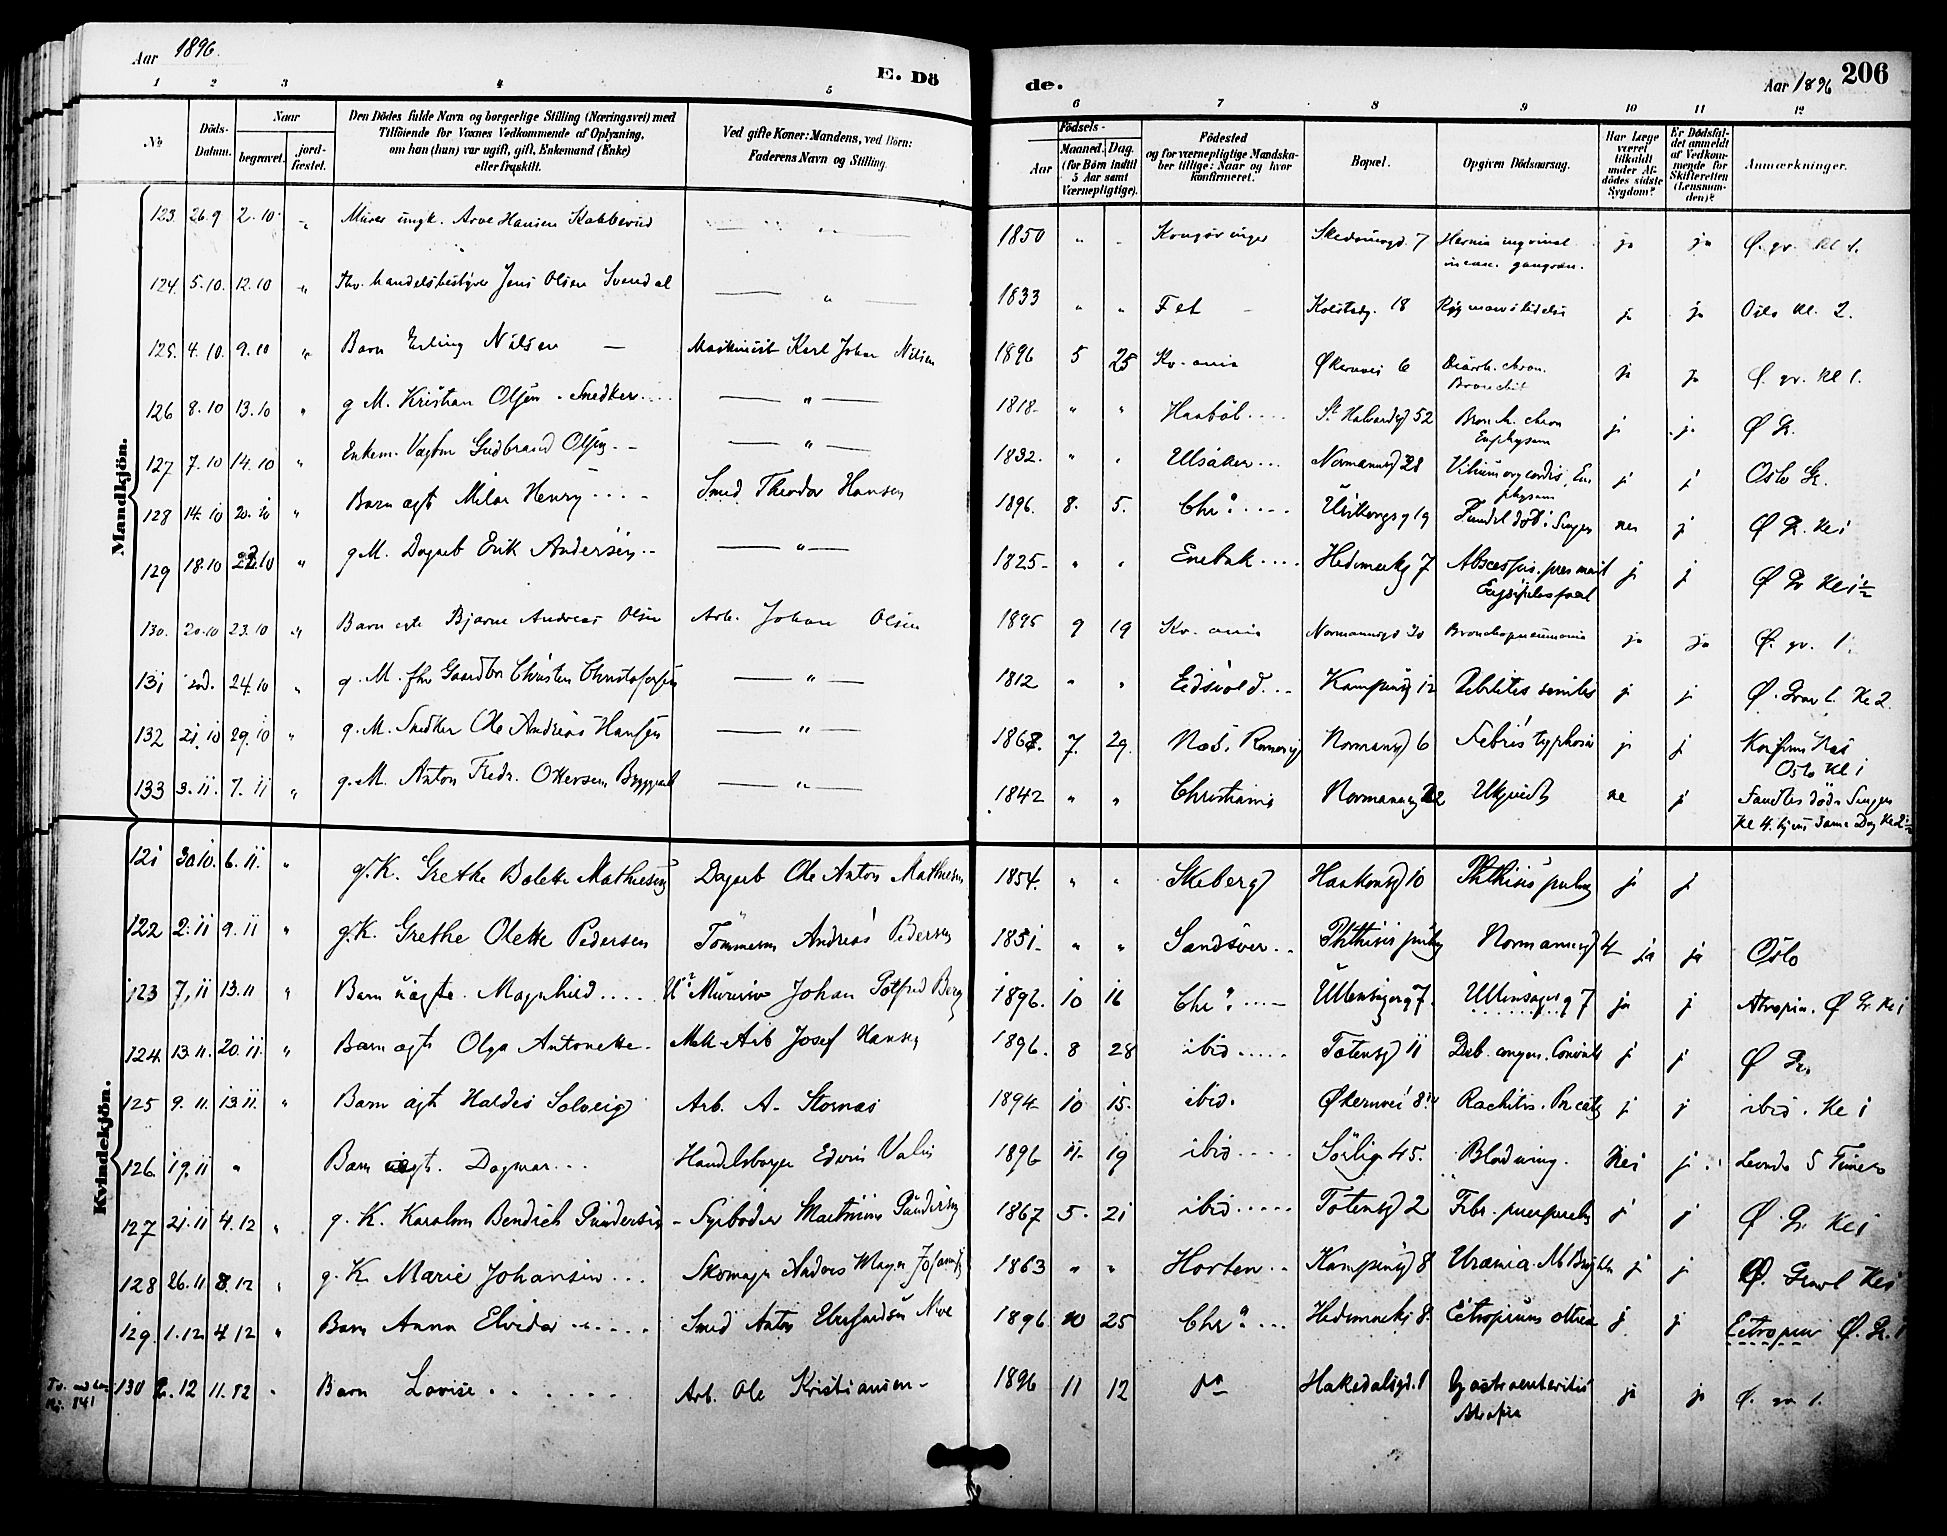 Aar 1896.
E. Dö
de.
Aar 1896
206
1 2 3 4 5 6 7 8 9 10 11 12
No
Döds-
Datum.
Naar
begravet.
jord-
fæstet.
Den Dödes fulde Navn og borgerlige Stilling (Næringsvei) med
Tilföiende for Voxnes Vedkommende af Oplysning,
om han (hun) var ugift, gift, Enkemand (Enke)
eller fraskilt.
Ved gifte Koner: Mandens, ved Börn:
Faderens Navn og Stilling.
Födsels-
Aar
Maaned.
Dag.
(for Börn indtil
5 Aar samt
Værnepligtige).
Födested
og for værnepligtige Mandska-
ber tillige: Naar og hvor
konfirmeret.
Bopæl.
Opgiven Dödsaarsag.
Har Læge
været
tilkaldt
under Af-
dödes sidste
Sygdom?
Er Dödsfal-
det anmeldt
af Vedkom-
mende for
Skifteretten
(Lensman-
den)?
Anmærkninger.
Mandkjön.
123. 26.9 2.10. " Murer ungk. Arve Hansen Kabberud " 1850 " " Kongsvinger 7 Hernia inguinal ja ja Ø. gr. kl 1.
incar. gangræn.
124. 5.10. 12.10 " Fhv. handelsbestyrer Jens Olsen Svendal " 1833 " " Fet 18 ja ja Oslo kl. 2.
125. 4.10. 9.10 " Barn Erling Nilsen Maskinist Karl Johan Nilsen 1896 5 25 Kr.ania Økernvei 6 Diarrh. chron. ja ja Ø. gr. kl 1.
Bronchit
126 8.10 13.10 " g M. Kristian Olsen. Snedker " 1818 " " Haaböl St Halvardsg 52 Bronch. chron j j. Ø Gr.
Emphysem
127 7.10 14.10 " Enkem. Gudbrand Olsen " 1832. " " Ullsaker Normannsg 28 Vitium org cordis, Em j j Oslo Gr.
physem
128 14.10 20.10 " Barn ægt Milar Henry Smed Theodor Hansen 1896. 8. 5. Chr.a 19 Fundet död i Sengen nei j Ø Gr. Kl 1
129 18.10 22.10 " g M. Dagarb Erik Andersen " 1825 " " Enebak Hedemarksg 7 j j Ø Gr Kl 1½
130. 20.10 23.10 " Barn egte Bjarne Andreas Olsen Arb. Johan Olsen 1895 9 19 Kr.ania Normannsgd 20 Bronchopneumonia ja ja Ø. gr. 1.
131 sod. 24.10 " g. M. fhv Gaardbr Christen Christofersen " 1812 " " Eidsvold Kampensg 12 Debilitas senilis j j Ø. Grav l. Kl 2
132 21.10 29.10 " g. M. Snedker Ole Andreas Hansen " 186 7 29. Næs, Romerig Normansg 6 Febris typhosa j j Konfirm Næs
Oslo Kl 1
133 3.11. 7.11 " g. M. Anton Fredr. Ottersen " 1842 " " Christiania Normannsg 22 Ukjendt ne j Fandtes död i Sengen
Kl 4. hjem samme Dag
Kvindekjön.
121 30.10. 6.11. " g. K. Grethe Bolette Mathiesen Dagarb Ole Anton Mathiesen 1854. " " Skeberg Haakonsg 10 Phthisis pulm j j
122 2.11 9.11 " g. K. Grethe Olette Pedersen Tömmerm Andreas Pedersen 1851 " " Sandsver Phthisis pulm Normannsg 4 ja ja Oslo
123 7.11 13.11 " Barn uægte. Magnhild Murersv Johan Berg 1896. 10 16 Chr.a Ullensagerg 7. Ullensagerg 7 ja j Atrophia. Ø Gr. Kl 1
124 13.11. 20.11. " Barn ægte Olga Antonette Mek. Arb Josef Hansen 1896. 8 28 ibid Totensg 11 Deb. congen. Convuls j j Ø Gr.
125 9.11. 13.11. " Barn ægte Haldis Solveig Arb. A. Stornæs 1894 10 15. ibid. Økernvei 8 Rachitis. j j ibid. Kl 1
126. 19.11 " Barn ægt. Dagmar Handelsborger Edvin Valin 1896 11 19 ibid Sörlig. 45. Blödning. Nei j Levende 5 Timer
127 21.11 4.12 " g. K. Karoline Bendich Gundersen Fyrböder Martinius Gundersen 1867 5. 21 ibid Totensg 2 Febr. puerperalis j j Ø. Gr. Kl 1
128 26.11 8.12 " g. K. Marie Johansen Skomager Anders Johansen 1863 " " Horten Kampensg 8 Uræmia. M. Brightii j j Ø. Gravl Kl 1
129. 1.12 4.12 " Barn Anna Elvida Smed Anton Moe 1896. 10 25 Chr.a Hedemarksg 8. j j Ø. Gr. 1
130 2.12 11.12 " Barn Lovise Arb. Ole Kristiansen 1896 11 12 do Hakedalsgd. 1 Gastroenteritis ja ja Ø. gr 1.
Atrofia